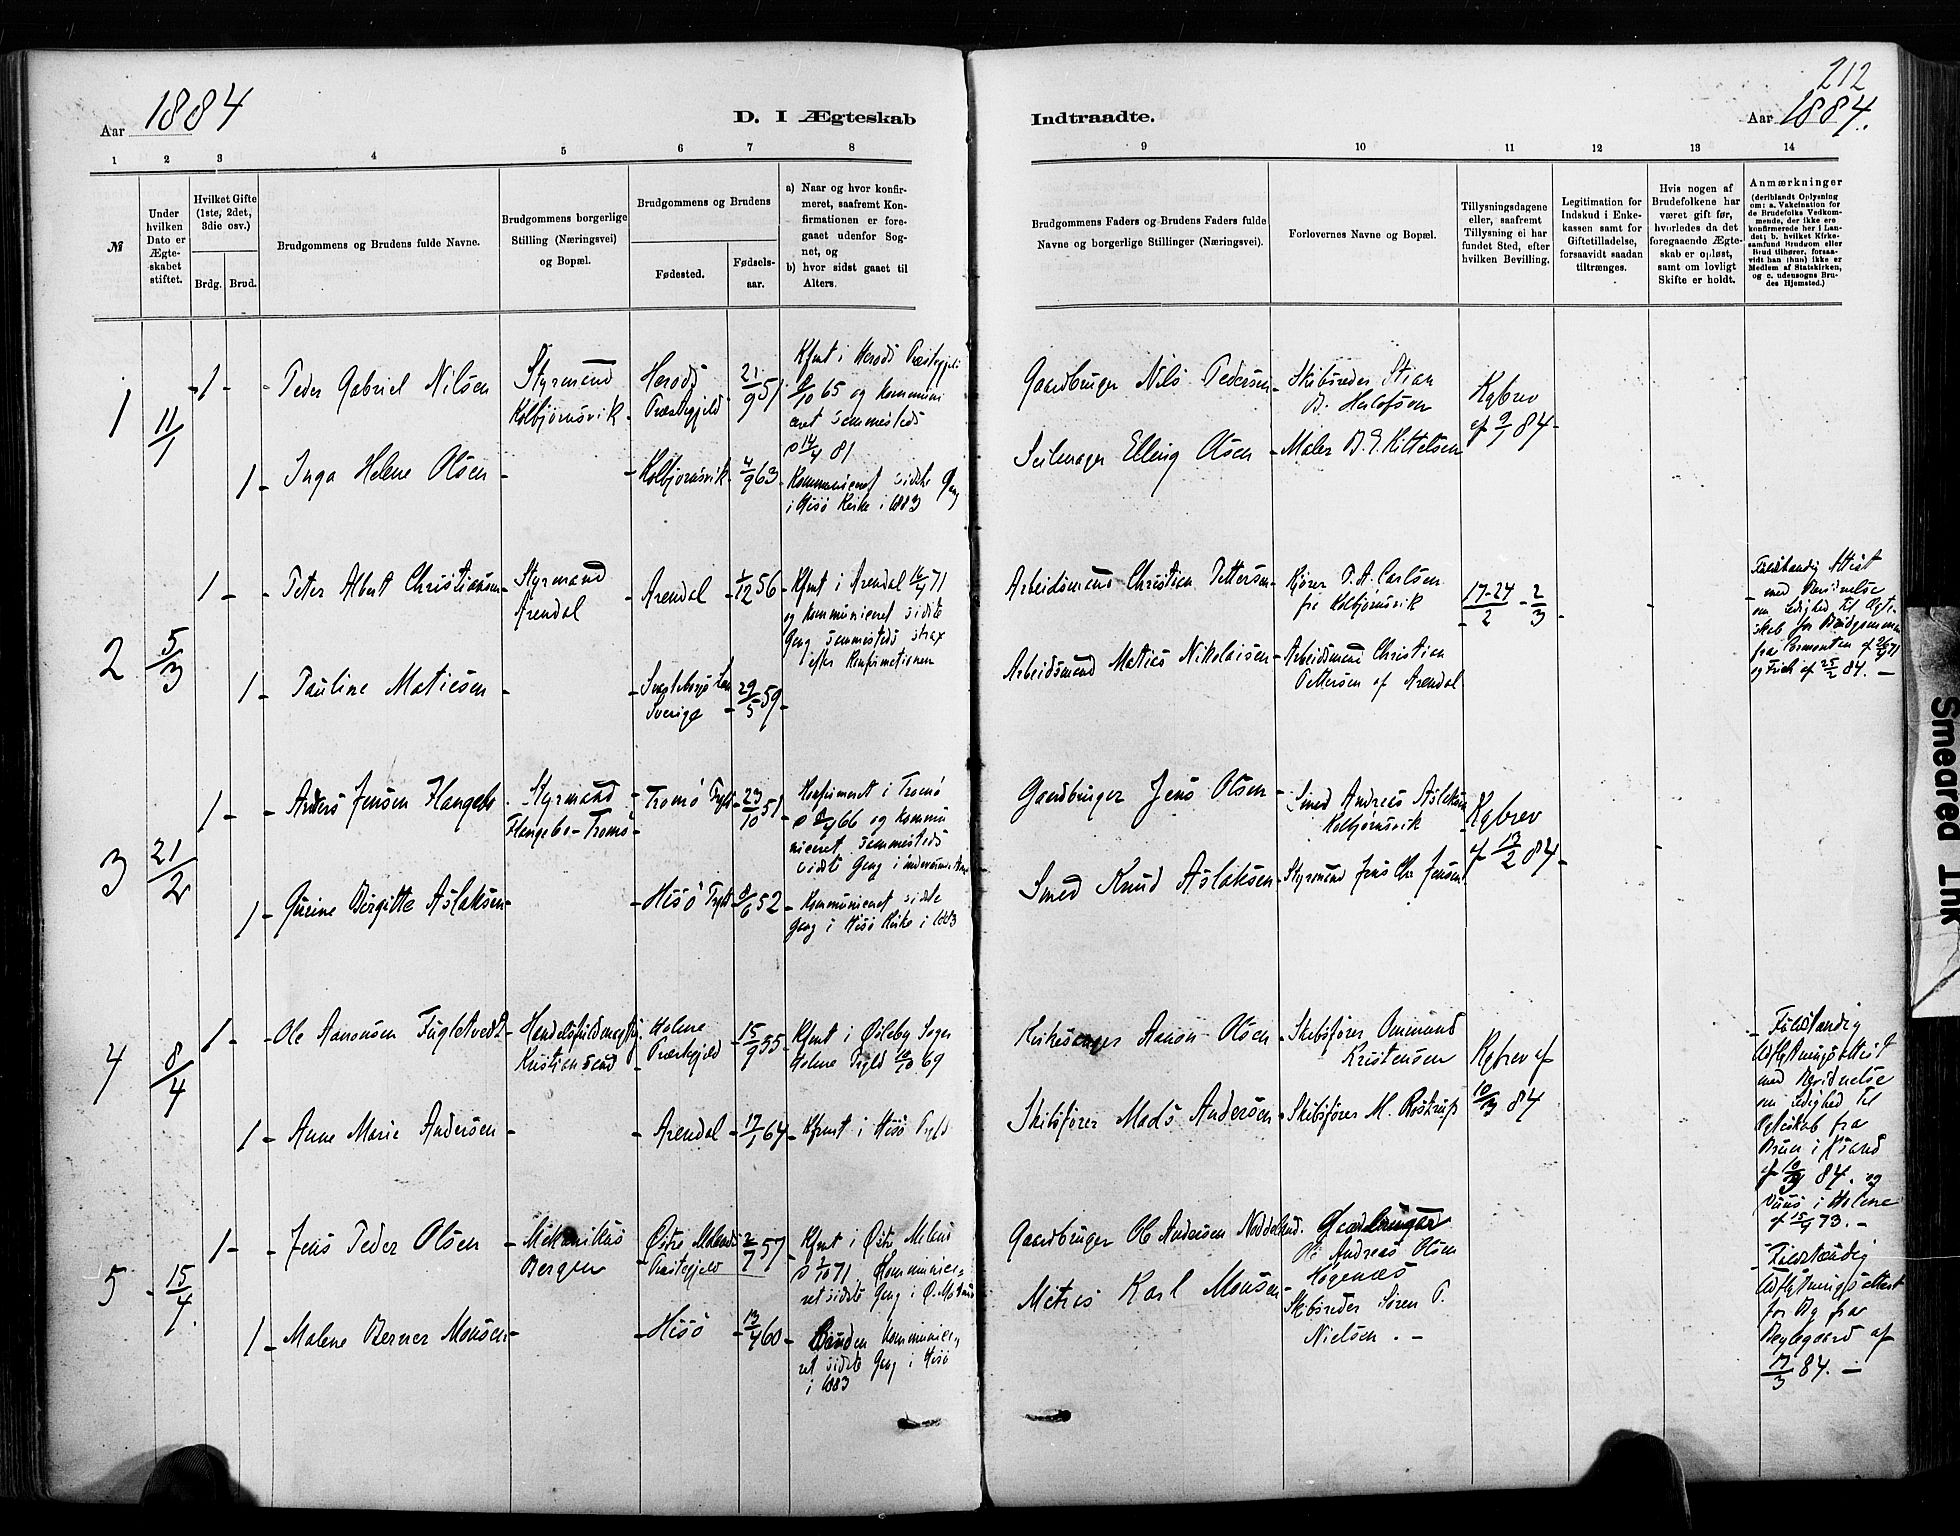 212
Aar 1884
D. I Ægteskab
Indtraadte.
Aar 1884.
1 2 3 4 5 6 7 8 9 10 11 12 13 14
№
Under
hvilken
Dato er
Ægte-
skabet
stiftet.
Hvilket Gifte
(1ste, 2det,
3die osv.)
Brdg. Brud.
Brudgommens og Brudens fulde Navne.
Brudgommens borgerlige
Stilling (Næringsvei)
og Bopæl.
Brudgommens og Brudens
Fødested.
Fødsels-
aar.
a) Naar og hvor konfir-
meret, saafremt Kon-
firmationen er fore-
gaaet udenfor Sog-
net, og
b) hvor sidst gaaet til
Alters.
Brudgommens Faders og Brudens Faders fulde
Navne og borgerlige Stillinger (Næringsvei).
Forlovernes Navne og Bopæl.
Tillysningsdagene
eller, saafremt
Tillysning ei har
fundet Sted, efter
hvilken Bevilling.
Legitimation for
Indskud i Enke-
kassen samt for
Giftetilladelse,
forsaavidt saadan
tiltrænges.
Hvis nogen af
Brudefolkene har
været gift før,
hvorledes da det
foregaaende Ægte-
skab er opløst,
samt om lovligt
Skifte er holdt.
Anmærkninger
(deriblandt Oplysning
om: a. Vakcination for
de Brudefolks Vedkom-
mende, der ikke ere
konfirmerede her i Lan-
det; b. hvilket Kirke-
samfund Brudgom eller
Brud tilhører, forsaa-
vidt han (hun) ikke er
Medlem af Statskirken,
og c. udensogns Bru-
des Hjemsted.)
1
11/1
1
Peder Gabriel Nilsen
Styrmand
Kolbjørnsvik
Herods
Præstegjeld
21/9 51
Kfmt i Herods
65 og kommuni
ceret sammesteds
81
Gaardbruger Nils Pedersen
Skibsreder Stian
B. Herlofsen
Kgbrev
af 9/1 84
1
Inga Helene Olsen
Kolbjørnsvik
4/9 63
Kommuniceret sidste Gang
i Hisø Kirke i 1883
Seilmager Elling Olsen
Maler B. E. Kittelsen
2
5/3
1
Peter Albert Christiansen
Styrmand
Arendal
Arendal
1/12 56
Kfmt i Arendal 16/4 71
og kommuniceret sidste
Gang sammesteds strax
efter Konfirmationen
Arbeidsmand Christian Pettersen
Kjører P. A. Carlsen
fra Kolbjørnsvik
17-24/2 - 2/3
Fuldstændig Attest
med Bevidnelse
om Ledighed til Ægte-
skab for Brudgommen
fra 71
og Frich af 25/2 84.
1
Pauline Matiesen
Sverige
29/5 59
Arbeidsmand Maties Nikolaisen
Arbeidsmand Christian
Pettersen af Arendal
3
21/2
1
Anders Jensen Flangebo
Styrmand
Flangebo - Tromø
Tromø Pgld
23/10 51
Konfirmeret i Tromø
66 og kommu
niceret sammesteds
sidste Gang i
Gaardbruger Jens Olsen
Smed Andreas Aslaksen
Kolbjørnsvik
Kgbrev
af 13/2 84
1
Gurine Birgitte Aslaksen
Hisø Pgld
8/6 52
Kommuniceret sidste
Gang i Hisø Kirke i 1883
Smed Knud Aslaksen
Styrmand Jens Chr Jensen
4
8/4
1
Ole Aanonsen Fugletvedt
Handelsfuldmægtig
Kristiansand
Holme
Præstegjeld
15/9 55
Kfmt i Øsleby Sogn
Holme Pgld 10/10 69
Kirkesanger Aanon Olsen
Skibsfører Ommund
Kristensen
Kgbrev af
10/3 84
Fuldstændig
Udflytningsattest
med Bevidnelse
om Ledighed til
Ægteskab fra
Bruun i Ksand
af 10/3 84. og
i Holme
af 15/4 73.
1
Anne Marie Andersen
Arendal
17/1 64
Kfmt i Hisø Pgld
Skibsfører Mads Andersen
Skibsfører M. Rostrup
5
15/4
1
Jens Peder Olsen
Mekanikus
Bergen
Østre Moland
Præstegjeld
2/7 57
Kfmt i Østre Moland
1/10 71 Kommunice-
ret sidste Gang i Ø. Moland
Gaardbruger Ole Andersen
Gaardbruger
Ole Andreas Olsen
Høgenæs
Fuldstændig
Udflytningsattest
for Bg fra
af
17/3 84.
1
Malene Berner Monsen
Hisø
13/4 60
Bruden kommunice-
ret sidste Gang i Hisø
i 1883
Matros Karl Monsen
Skibsreder Søren P.
Nielsen.
Smeared Ink